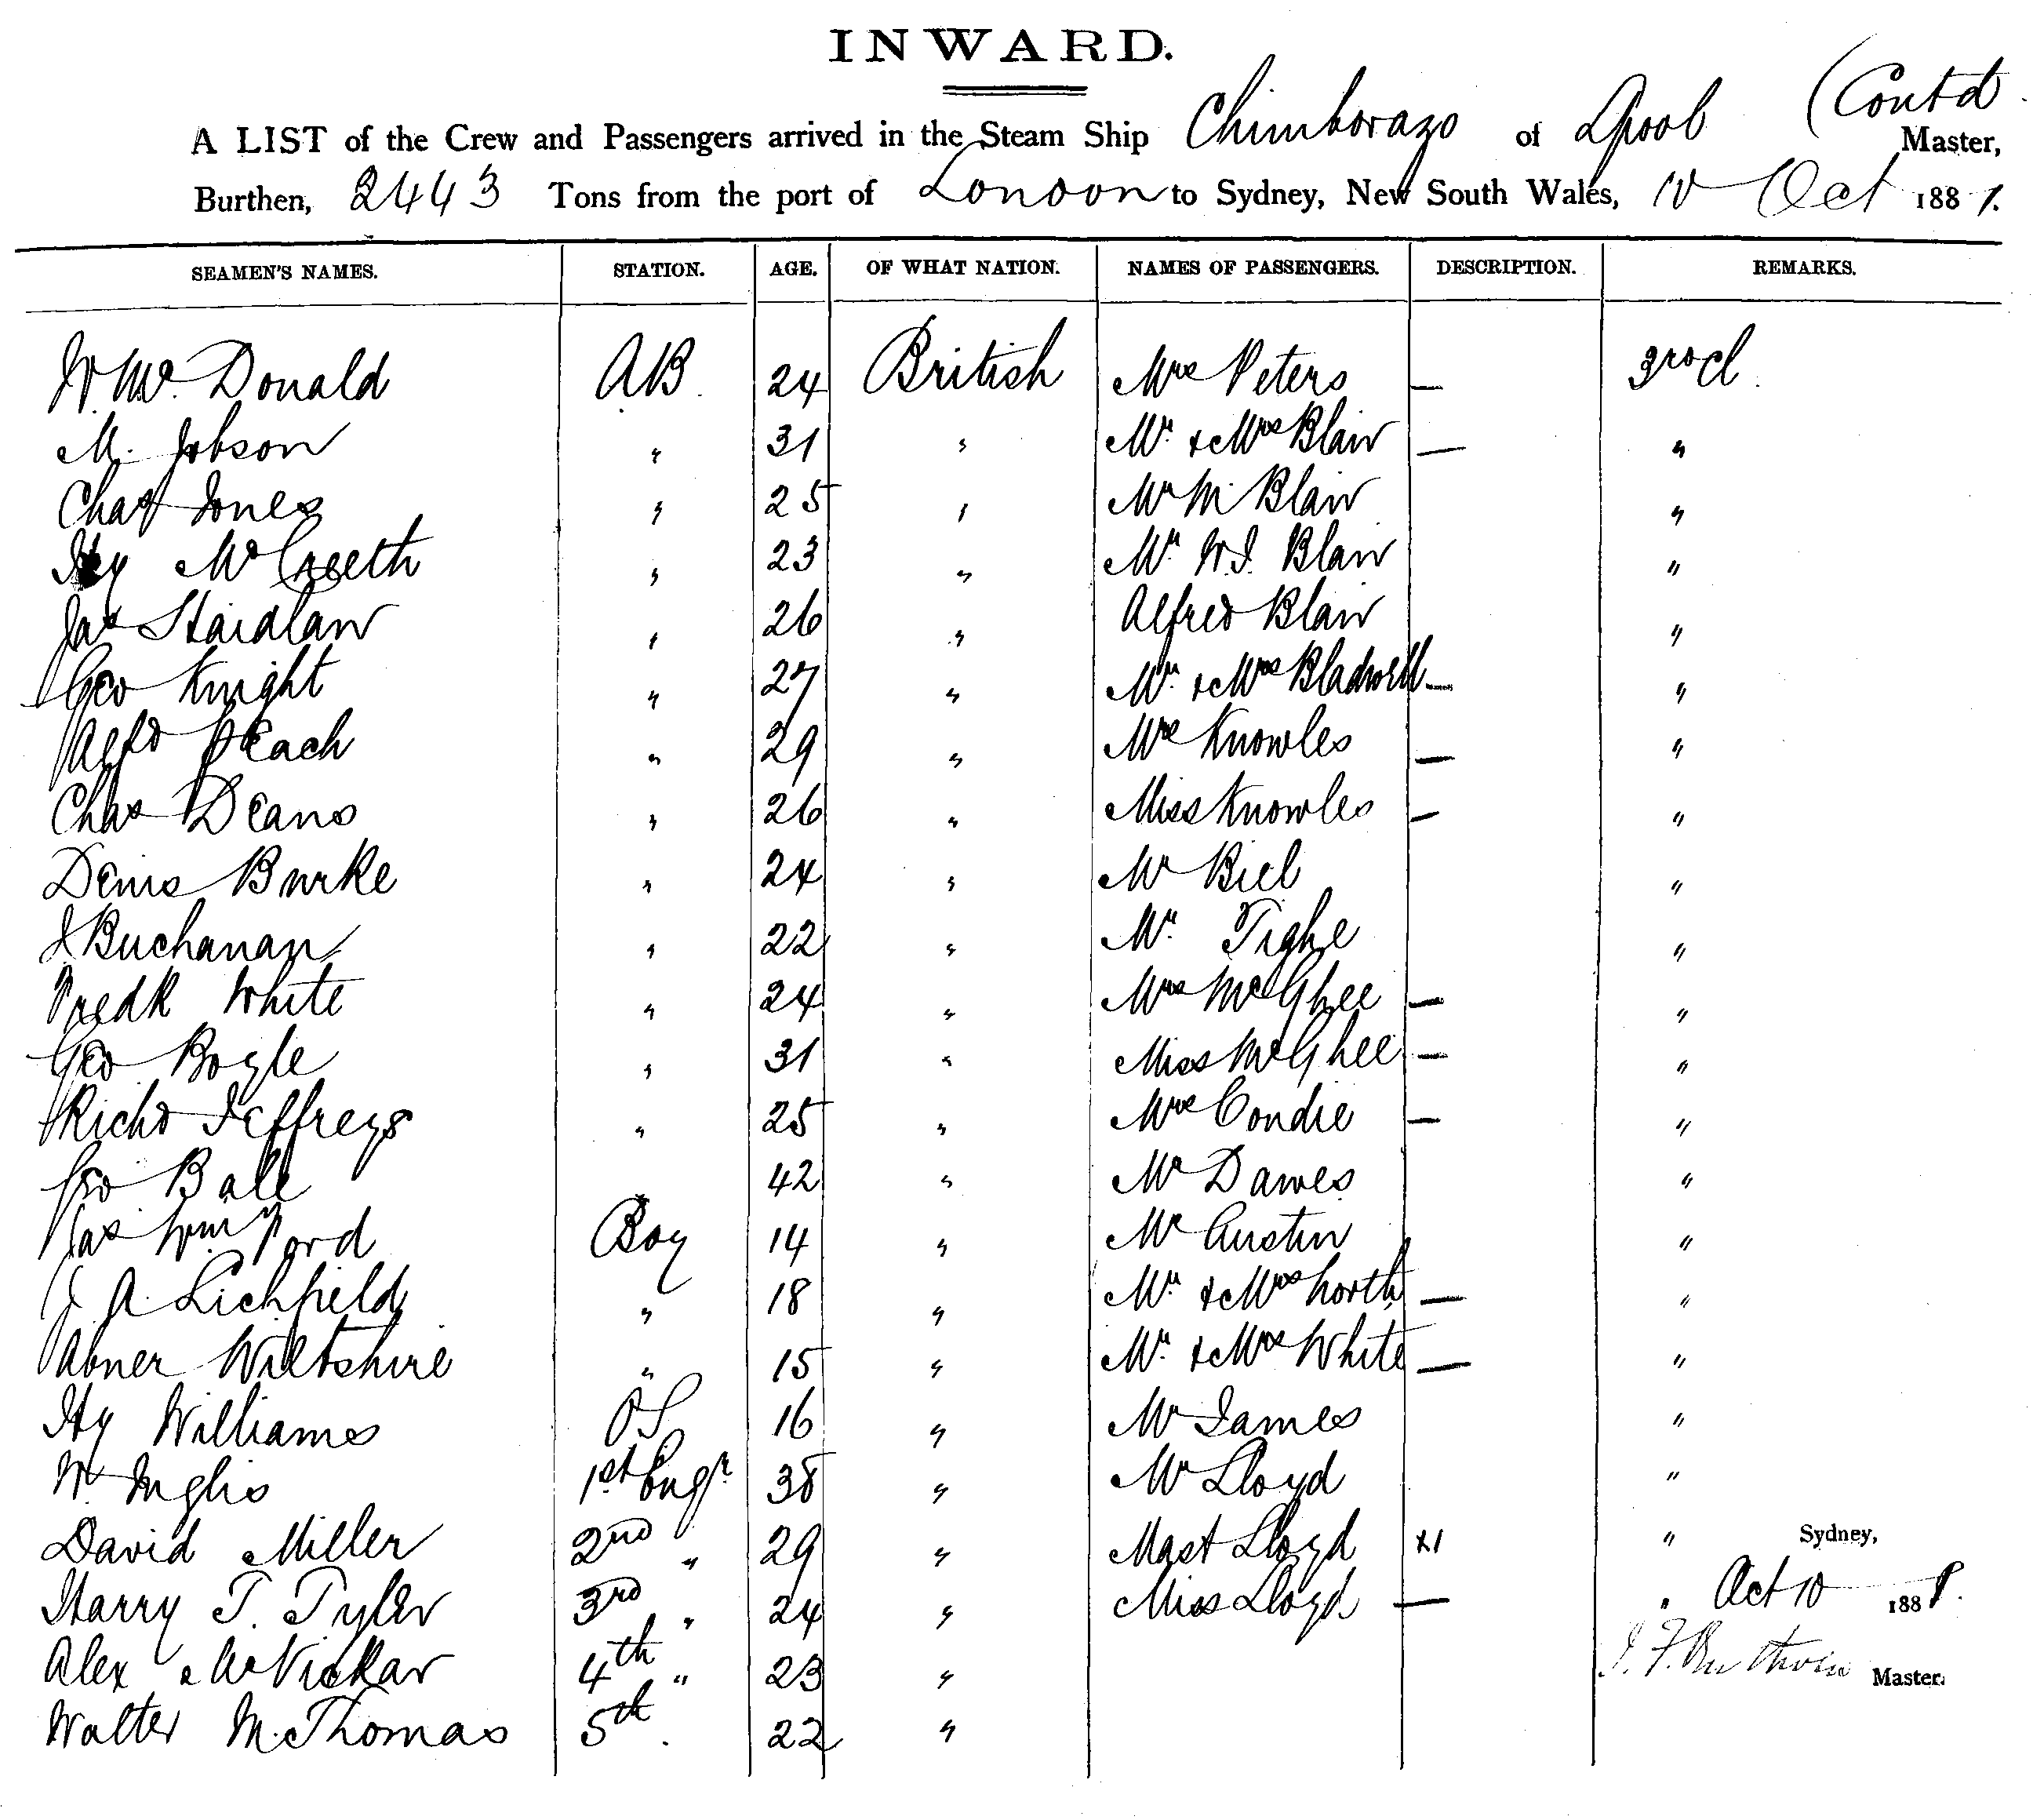 INWARD.
(Contd
A LIST of the Crew and Passengers arrived in the Steam Ship Chimborazo of Lpool Master,
Burthen, 2443 Tons from the port of London to Sydney, New South Wales, 10 Oct 1881.
SEAMEN'S NAMES. STATION. AGE. OF WHAT NATION. NAMES OF PASSENGERS. DESCRIPTION. REMARKS.
W. Mc. Donald AB. 24 British Mrs Peters — 3rd cl.
M. Jobson " 31 " Mr. & Mrs Blair — "
Chas Jones " 25 " Mr M. Blair "
Hy McCreeth " 23 " Mr. W.J. Blair "
Jas Staidlaw " 26 " Alfred Blair "
Geo Knight " 27 " Mr. & Mrs Bladwell — "
Alfd Peach " 29 " Mrs Knowles — "
Chas Deans " 26 " Miss Knowles — "
Denis Burke " 24 " Mr Biel "
J Buchanan " 22 " Mr. Tighe "
Fredk White " 24 " Mrs McGhee — "
Geo Bogle " 31 " Miss McGhee — "
Richd Jeffreys " 25 " Mrs Condie — "
Geo Bale 42 " Mr Dawes "
Jas Wm Ford Boy 14 " Mr Austin "
J. A. Lichfield " 18 " Mr. & Mrs North — "
Abner Wiltshire " 15 " Mr. & Mrs White — "
Hy Williams OS. 16 " Mr James "
W. Inglis 1st Engr. 38 " Mr Lloyd "
David Miller 2nd " 29 " Mast Lloyd x1 " Sydney,
Harry T. Tyler 3rd " 24 " Miss Lloyd — " Oct 10 1881.
Alex McVickar 4th " 23 " Master.
Walter M. Thomas 5th. 22 "